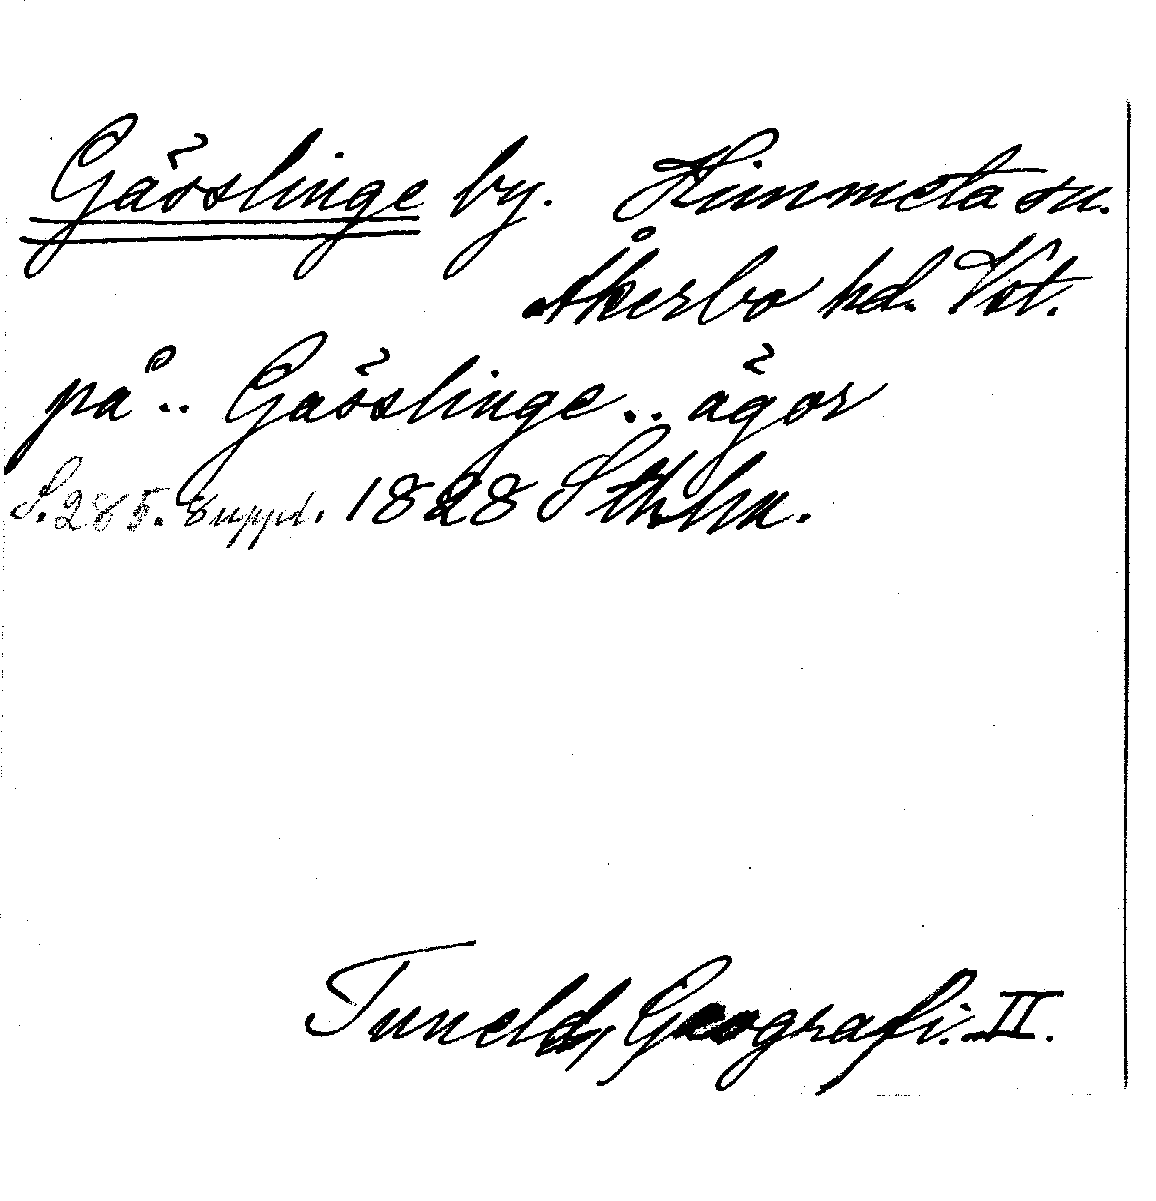 Gässlinge by. Himmeta sn.
Åkerbo hd. Vst.
på.. Gässlinge.. ägor
S. 285. Suppl. 1828 Sthlm.
Tuneld, Geografi. II.